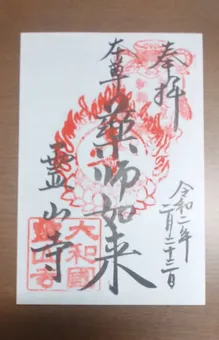 奉拝
令和二年
二月二十三日
本尊
薬師如来
霊山寺
大和國